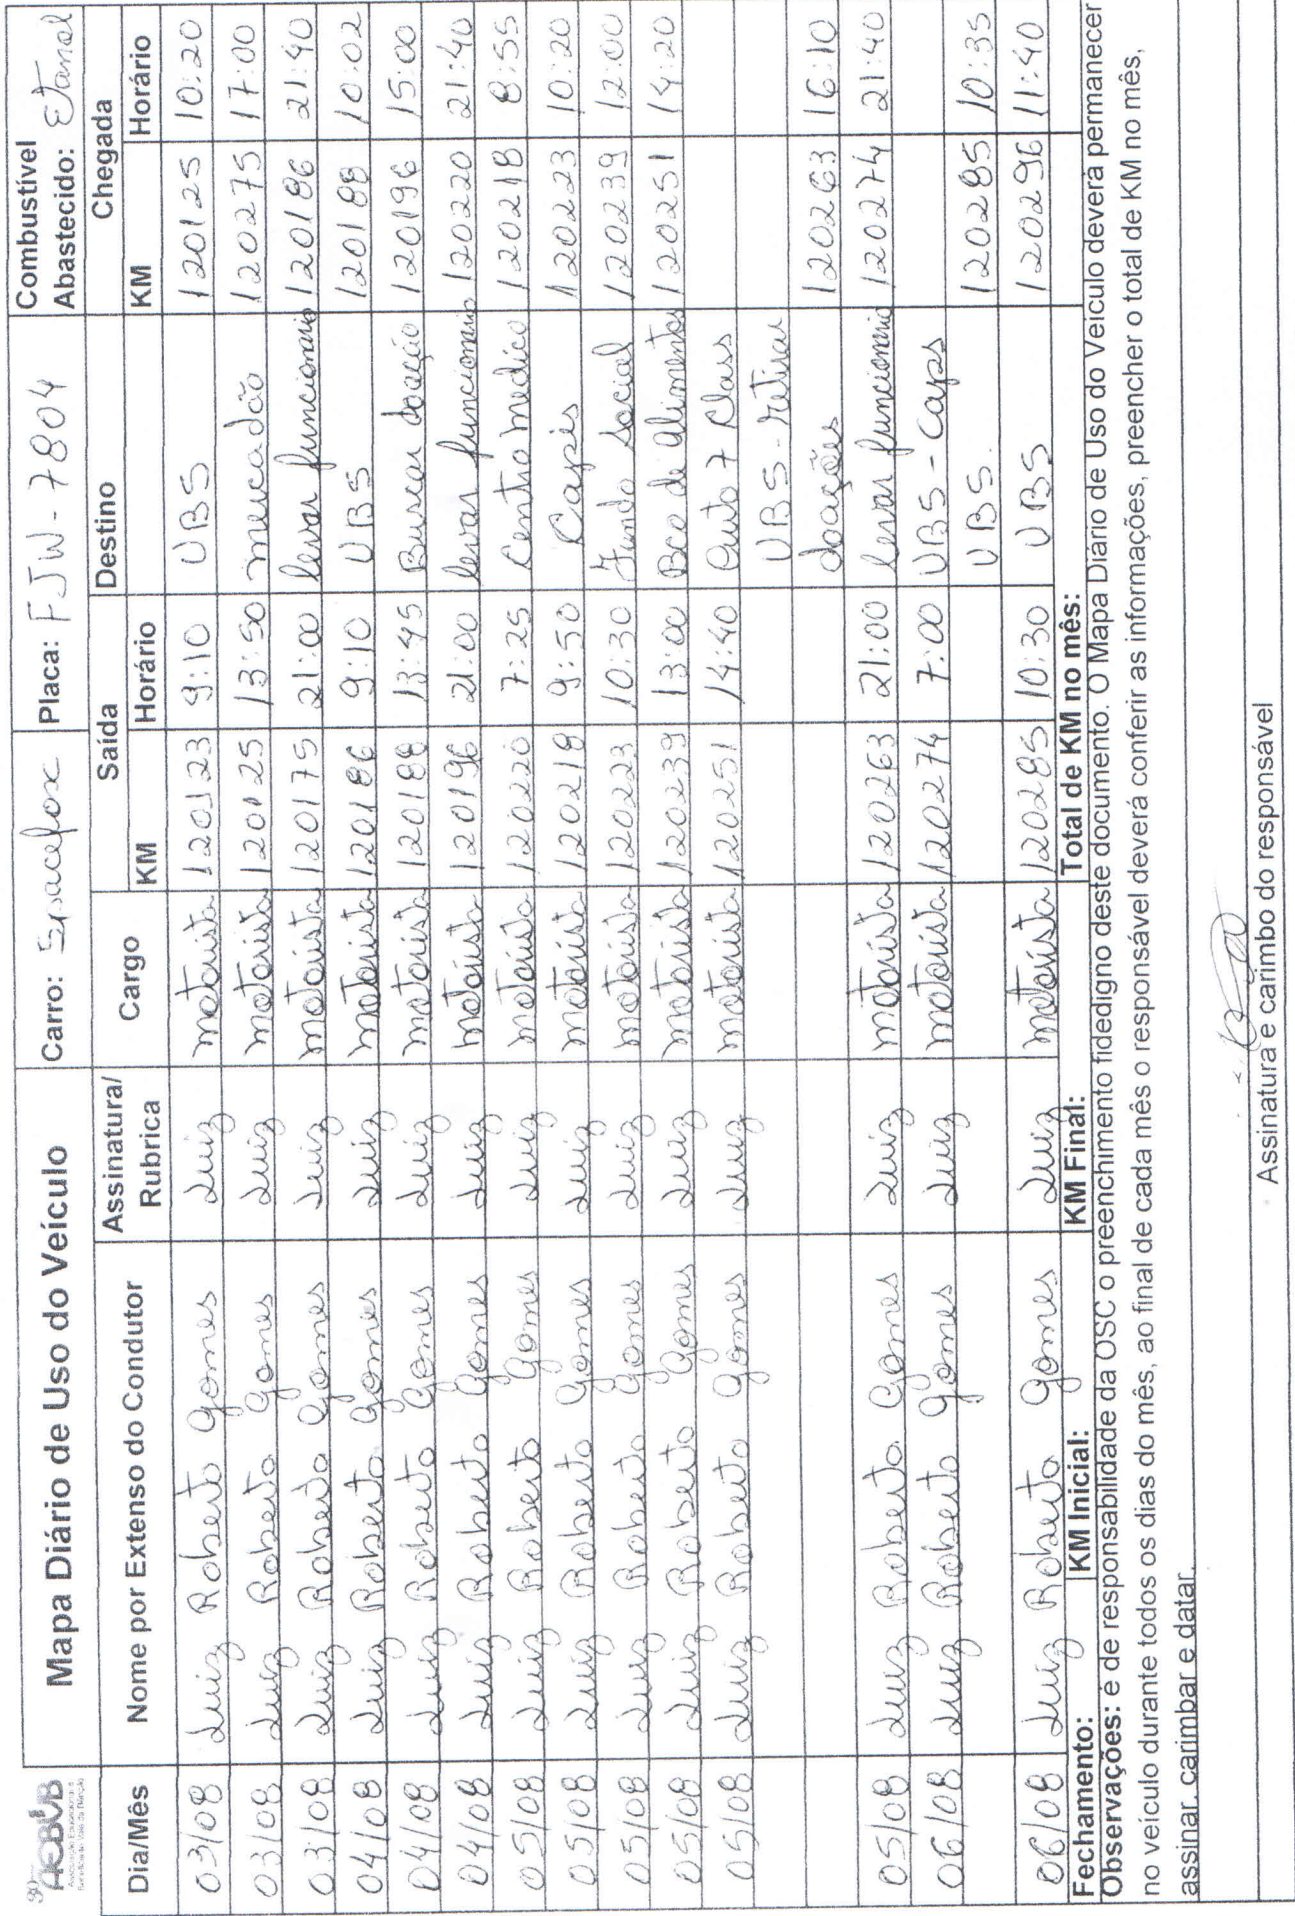 90 AEBVB
Mapa Diário de Uso do Veículo Carro: Spacefox Placa: FJW-7804 Combustível Abastecido: Etanol
Dia/Mês Nome por Extenso do Condutor Assinatura/Rubrica Cargo Saída Destino Chegada
KM Horário KM Horário
03/08 Luiz Roberto Gomes Luiz motorista 120123 9:10 UBS 120125 10:20
03/08 Luiz Roberto Gomes Luiz motorista 120125 13:50 mercadão 120275 17:00
03/08 Luiz Roberto Gomes Luiz motorista 120175 21:00 levar funcionario 120186 21:40
04/08 Luiz Roberto Gomes Luiz motorista 120186 9:10 UBS 120188 10:02
04/08 Luiz Roberto Gomes Luiz motorista 120188 13:45 Buscar doação 120196 15:00
04/08 Luiz Roberto Gomes Luiz motorista 120196 21:00 levar funcionario 120220 21:40
05/08 Luiz Roberto Gomes Luiz motorista 120220 7:25 Centro medico 120218 8:55
05/08 Luiz Roberto Gomes Luiz motorista 120218 9:50 Capis 120223 10:20
05/08 Luiz Roberto Gomes Luiz motorista 120223 10:30 Fundo Social 120239 12:00
05/08 Luiz Roberto Gomes Luiz motorista 120239 13:00 Bco de alimentos 120251 14:20
05/08 Luiz Roberto Gomes Luiz motorista 120251 14:40 Auto 7 Class
UBS - retirar
doações 120263 16:10
05/08 Luiz Roberto Gomes Luiz motorista 120263 21:00 levar funcionario 120274 21:40
06/08 Luiz Roberto Gomes Luiz motorista 120274 7:00 UBS - Caps
UBS. 120285 10:35
06/08 Luiz Roberto Gomes Luiz motorista 120285 10:30 UBS 120296 11:40
Fechamento: KM Inicial: KM Final: Total de KM no mês:
Observações: é de responsabilidade da OSC o preenchimento fidedigno deste documento. O Mapa Diário de Uso do Veículo deverá permanecer
no veículo durante todos os dias do mês, ao final de cada mês o responsável deverá conferir as informações, preencher o total de KM no mês,
assinar, carimbar e datar.
Assinatura e carimbo do responsável